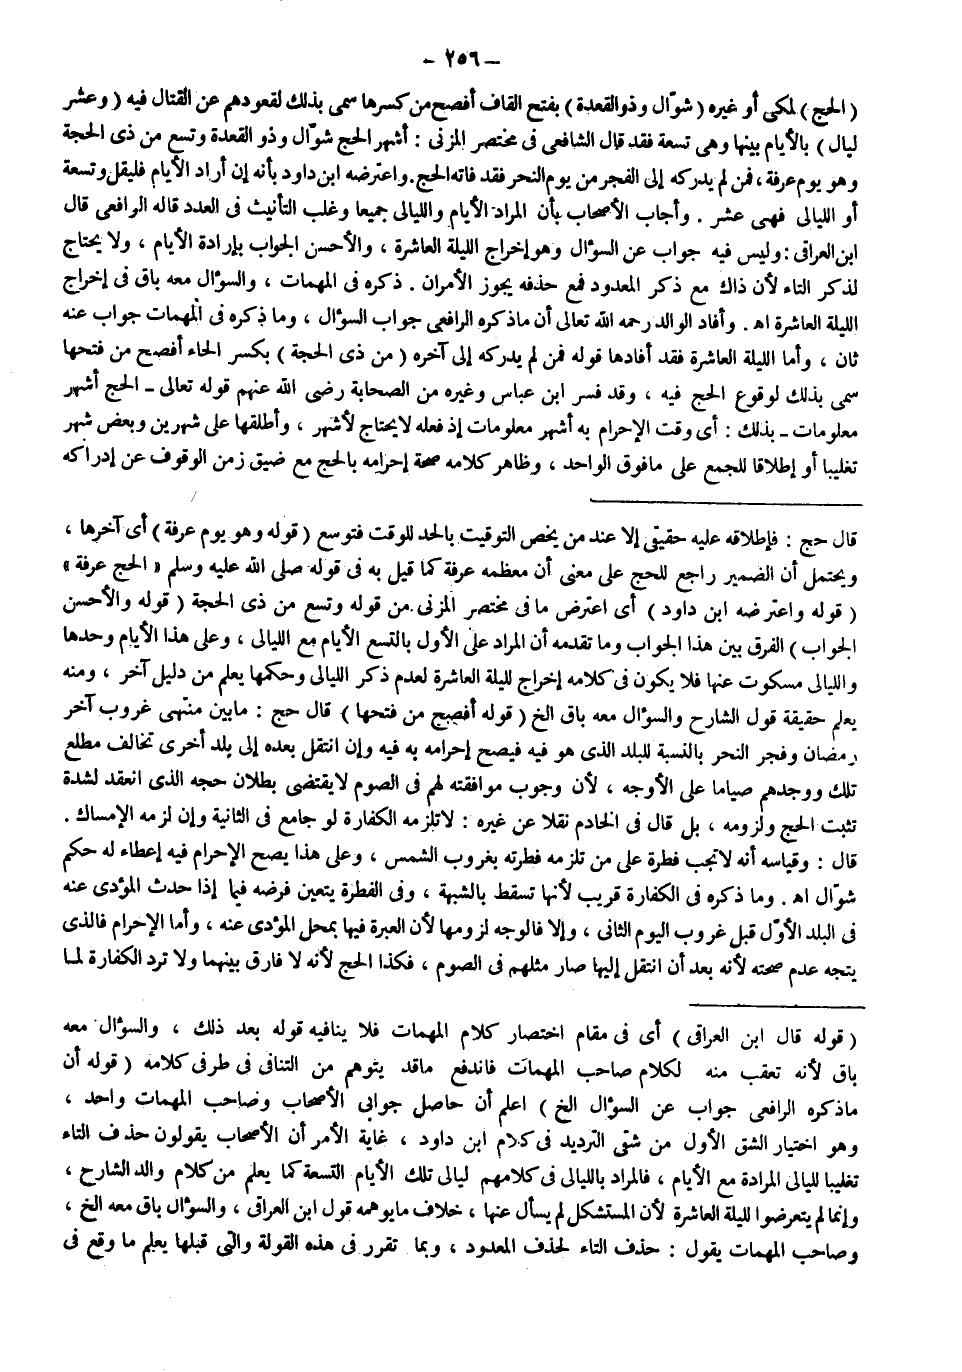 - ٢٥٦ -
(الحج) لمكى أو غيره (شوّال وذوالقعدة) بفتح القاف أفصح من كسرها سمى بذلك لقعودهم عن القتال فيه (وعشر
ليال) بالأيام بينها وهى تسعة فقد قال الشافعى فى مختصر المزنى : أشهر الحج شوّال وذو القعدة وتسع من ذى الحجة
وهو يوم عرفة ، فمن لم يدركه إلى الفجر من يوم النحر فقد فاته الحج . واعترضه ابن داود بأنه إن أراد الأيام فليقل وتسعة
أو الليالى فهى عشر . وأجاب الأصحاب بأن المراد الأيام والليالى جميعا وغلب التأنيث فى العدد قاله الرافعى قال
ابن العراقى : وليس فيه جواب عن السؤال وهو إخراج الليلة العاشرة ، والأحسن الجواب بإرادة الأيام ، ولا يحتاج
لذكر التاء لأن ذاك مع ذكر المعدود فمع حذفه يجوز الأمران . ذكره فى المهمات ، والسؤال معه باق فى إخراج
الليلة العاشرة اه . وأفاد الوالد رحمه الله تعالى أن ماذكره الرافعى جواب السؤال ، وما ذكره فى المهمات جواب عنه
ثان ، وأما الليلة العاشرة فقد أفادها قوله فمن لم يدركه إلى آخره (من ذى الحجة) بكسر الحاء أفصح من فتحها
سمى بذلك لوقوع الحج فيه ، وقد فسر ابن عباس وغيره من الصحابة رضى الله عنهم قوله تعالى ــ الحج أشهر
معلومات ــ بذلك : أى وقت الإحرام به أشهر معلومات إذ فعله لايحتاج لأشهر ، وأطلقها على شهرين وبعض شهر
تغليبا أو إطلاقا للجمع على مافوق الواحد ، وظاهر كلامه صحة إحرامه بالحج مع ضيق زمن الوقوف عن إدراكه
قال حج : فإطلاقه عليه حقيقى إلا عند من يخص التوقيت بالحد للوقت فتوسع (قوله وهو يوم عرفة) أى آخرها ،
ويحتمل أن الضمير راجع للحج على معنى أن معظمه عرفة كما قيل به فى قوله صلى الله عليه وسلم « الحج عرفة »
(قوله واعترضه ابن داود) أى اعترض ما فى مختصر المزنى من قوله وتسع من ذى الحجة (قوله والأحسن
الجواب) الفرق بين هذا الجواب وما تقدمه أن المراد على الأول بالتسع الأيام مع الليالى ، وعلى هذا الأيام وحدها
والليالى مسكوت عنها فلا يكون فى كلامه إخراج لليلة العاشرة لعدم ذكر الليالى وحكمها يعلم من دليل آخر ، ومنه
يعلم حقيقة قول الشارح والسؤال معه باق الخ (قوله أفصح من فتحها) قال حج : مابين منتهى غروب آخر
رمضان وفجر النحر بالنسبة للبلد الذى هو فيه فيصح إحرامه به فيه وإن انتقل بعده إلى بلد أخرى تخالف مطلع
تلك ووجدهم صياما على الأوجه ، لأن وجوب موافقته لهم فى الصوم لايقتضى بطلان حجه الذى انعقد لشدة
تثبت الحج ولزومه ، بل قال فى الخادم نقلا عن غيره : لاتلزمه الكفارة لو جامع فى الثانية وإن لزمه الإمساك .
قال : وقياسه أنه لاتجب فطرة على من تلزمه فطرته بغروب الشمس ، وعلى هذا يصح الإحرام فيه إعطاء له حكم
شوّال اه . وما ذكره فى الكفارة قريب لأنها تسقط بالشبهة ، وفى الفطرة يتعين فرضه فيما إذا حدث المؤدى عنه
فى البلد الأوّل قبل غروب اليوم الثانى ، وإلا فالوجه لزومها لأن العبرة فيها بمحل المؤدى عنه ، وأما الإحرام فالذى
يتجه عدم صحته لأنه بعد أن انتقل إليها صار مثلهم فى الصوم ، فكذا الحج لأنه لا فارق بينهما ولا ترد الكفارة لما
(قوله قال ابن العراقى) أى فى مقام اختصار كلام المهمات فلا ينافيه قوله بعد ذلك ، والسؤال معه
باق لأنه تعقب منه لكلام صاحب المهمات فاندفع ماقد يتوهم من التنافى فى طرفى كلامه (قوله أن
ماذكره الرافعى جواب عن السؤال الخ) اعلم أن حاصل جوابى الأصحاب وصاحب المهمات واحد ،
وهو اختيار الشق الأول من شقى الترديد فى كلام ابن داود ، غاية الأمر أن الأصحاب يقولون حذف التاء
تغليبا لليالى المرادة مع الأيام ، فالمراد بالليالى فى كلامهم ليالى تلك الأيام التسعة كما يعلم من كلام والد الشارح ،
وإنما لم يتعرضوا لليلة العاشرة لأن المستشكل لم يسأل عنها ، خلاف مايوهمه قول ابن العراقى ، والسؤال باق معه الخ ،
وصاحب المهمات يقول : حذف التاء لحذف المعدود ، وبما تقرر فى هذه القولة والتى قبلها يعلم ما وقع فى